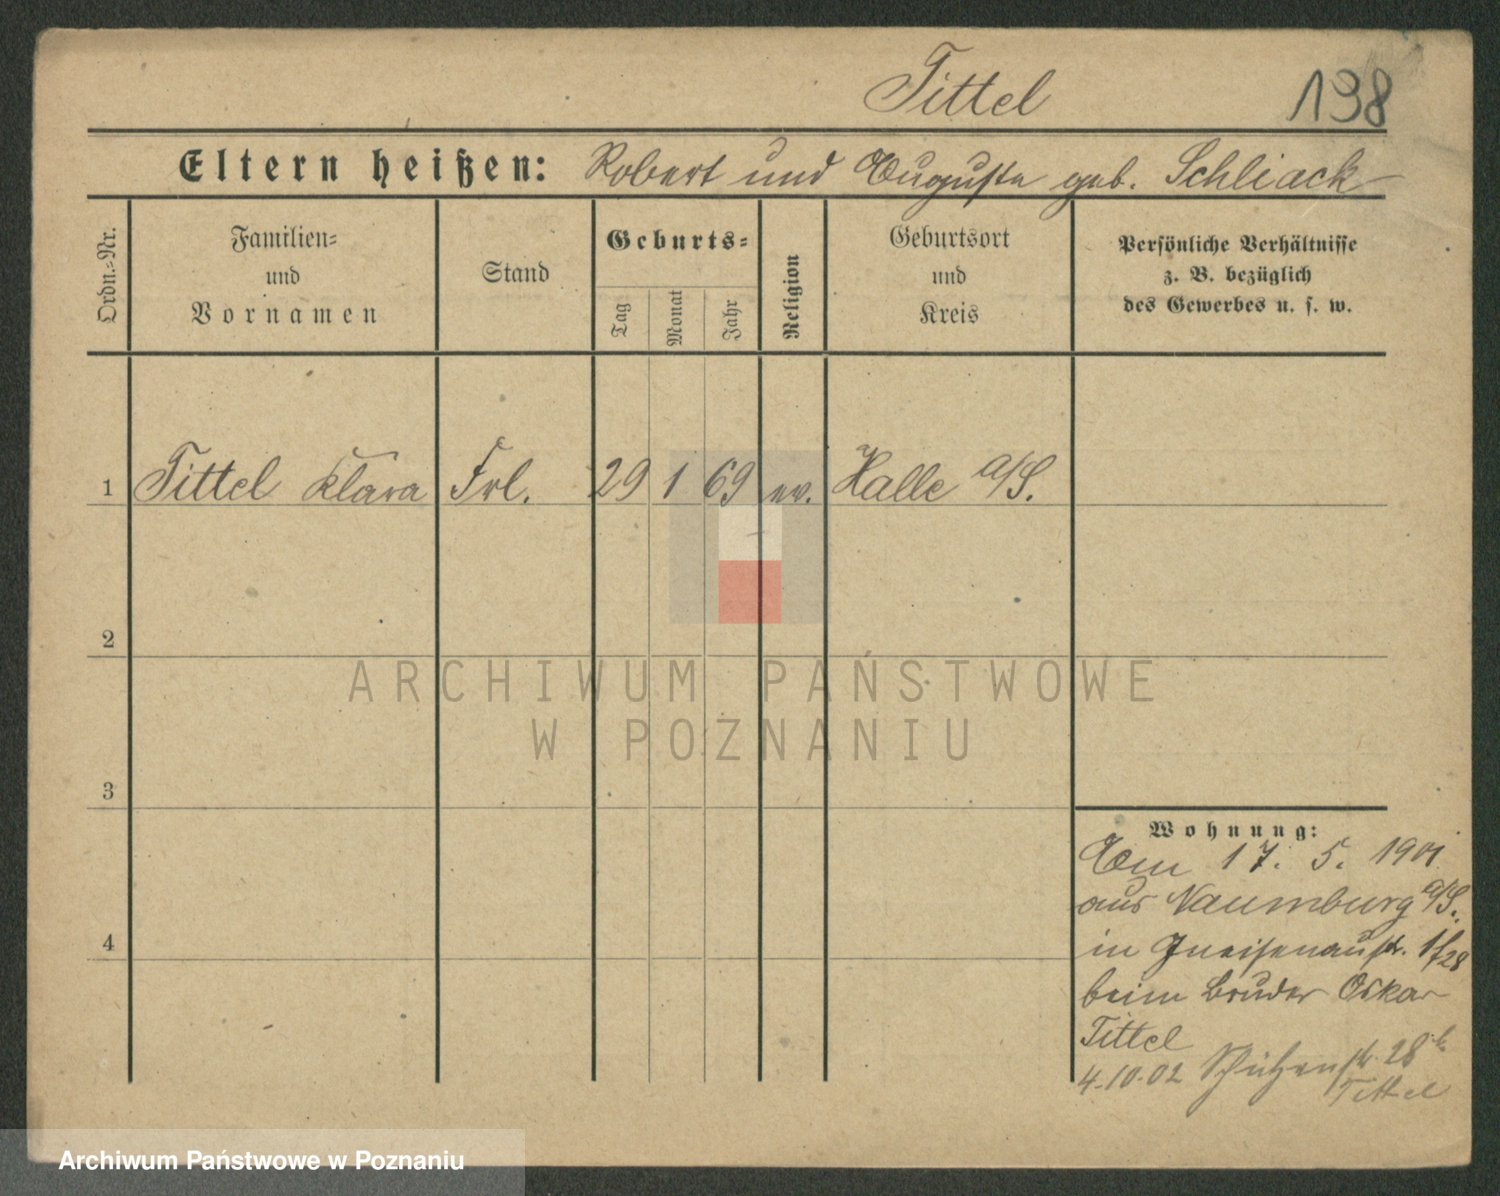 Tittel 138
Eltern heißen: Robert und Auguste geb. Schliack
Ordn.-Nr.
Familien-
und
Vornamen
Stand
Geburts-
Tag
Monat
Jahr
Religion
Geburtsort
und
Kreis
Persönliche Verhältnisse
z. B. bezüglich
des Gewerbes u. s. w.
1 Tittel Klara Frl. 29 1 69 ev. Halle a/S.
2
ARCHIWUM PAŃSTWOWE
W POZNANIU
3
Wohnung:
Am 17. 5. 1901
aus Naumburg a/S.
4
in Gneisenaustr. 1/28
beim Bruder Oskar
Tittel
4.10.02 Schützenstr. 28b
Tittel
Archiwum Państwowe w Poznaniu